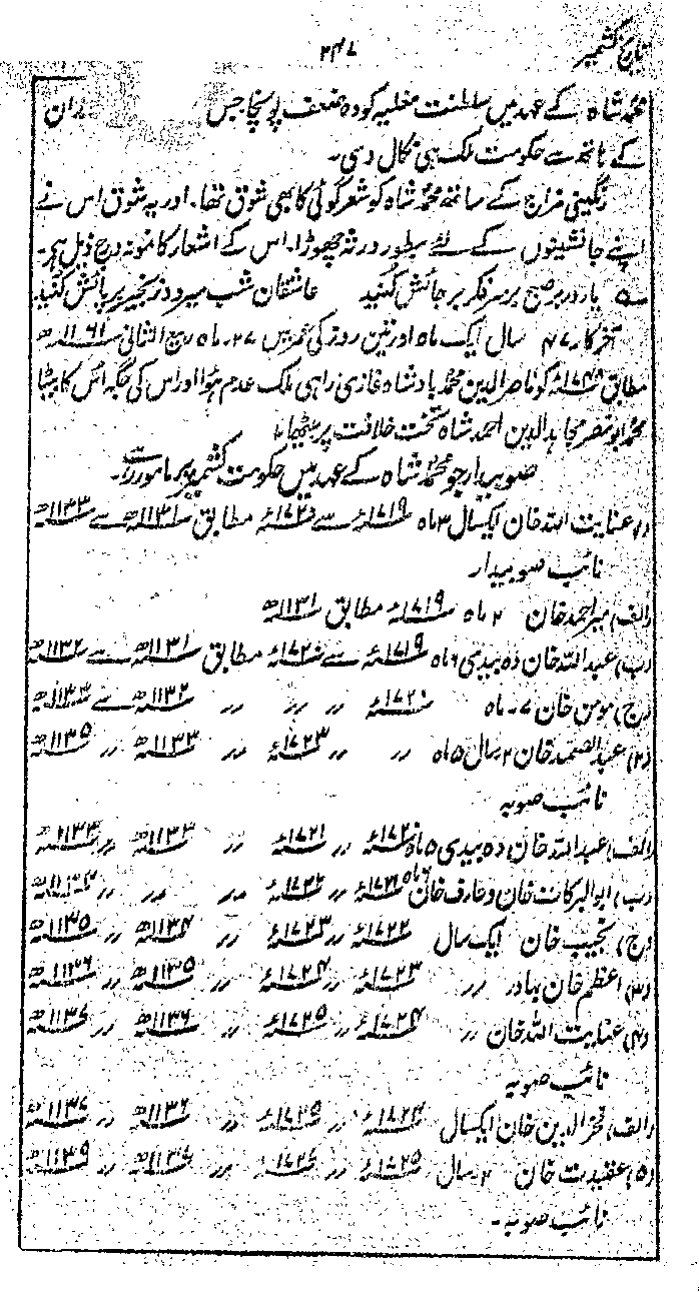 تاریخ کشمیر
۳۴۷
محمد شاہ کے عہد میں سلطنت مغلیہ کو وہ ضعف پہنچا جس ان
کے ہاتھ سے حکومت ملک ہی نکال دی۔
رنگینی مزاج کے ساتھ محمد شاہ کو شعر گوئی کا بھی شوق تھا۔ اور یہ شوق اس نے
اپنے جانشینوں کے لئے بطور ورثہ چھوڑا۔ اس کے اشعار کا نمونہ درج ذیل ہے۔
صبح عاشقان شب
آخر کار ۴۷ سال ایک ماہ اور تین روز کی عمر میں ۲۷۔ ماہ ربیع الثانی ۱۱۶۱ھ
مطابق ۱۷۴۸ء کو ناصر الدین محمد بادشاہ غازی راہی ملک عدم ہوا اور اس کی جگہ اس کا بیٹا
محمد ابو نصر مجاہد الدین احمد شاہ تخت خلافت پر بیٹھا۔
صوبیدار جو محمد شاہ کے عہد میں حکومت کشمیر پر مامور رہے۔
(۱) عنایت اللہ خان ایکسال ۳ ماہ ۱۷۱۹ء سے ۱۷۲۰ء مطابق ۱۱۳۱ھ سے ۱۱۳۳ھ
نائب صوبیدار
(الف) میر احمد خان ۲ ماہ ۱۷۱۹ء مطابق ۱۱۳۱ھ
(ب) عبداللہ خان دہ بیدی ۶ ماہ ۱۷۱۹ء سے ۱۷۲۰ء مطابق ۱۱۳۱ھ سے ۱۱۳۲ھ
(ج) مومن خان ۷۔ ماہ ۱۷۲۰ء 〃 〃 〃 ۱۱۳۲ھ سے ۱۱۳۳ھ
(۲) عبدالصمد خان ۲ سال ۵ ماہ 〃 〃 ۱۷۲۳ء 〃 ۱۱۳۳ھ 〃 ۱۱۳۵ھ
نائب صوبہ
(الف) عبداللہ خان دہ بیدی ۵ ماہ ۱۷۲۰ء 〃 ۱۷۲۱ء 〃 ۱۱۳۳ھ 〃 ۱۱۳۳ھ
(ب) ابوالبرکات خان و عارف خان ۶ ماہ ۱۷۲۱ء 〃 ۱۷۲۲ء 〃 〃 〃 ۱۱۳۴ھ
(ج) نجیب خان ایک سال ۱۷۲۲ء 〃 ۱۷۲۳ء 〃 ۱۱۳۴ھ 〃 ۱۱۳۵ھ
(۳) اعظم خان بہادر 〃 ۱۷۲۳ء 〃 ۱۷۲۴ء 〃 ۱۱۳۵ھ 〃 ۱۱۳۶ھ
(۴) عنایت اللہ خان 〃 ۱۷۲۴ء 〃 ۱۷۲۵ء 〃 ۱۱۳۶ھ 〃 ۱۱۳۷ھ
نائب صوبہ
(الف) فخر الدین خان ایکسال ۱۷۲۴ء 〃 ۱۷۲۵ء 〃 ۱۱۳۶ھ 〃 ۱۱۳۷ھ
(۵) عقیدت خان ۲۔ سال ۱۷۲۵ء 〃 ۱۷۲۷ء 〃 ۱۱۳۷ھ 〃 ۱۱۳۹ھ
نائب صوبہ۔